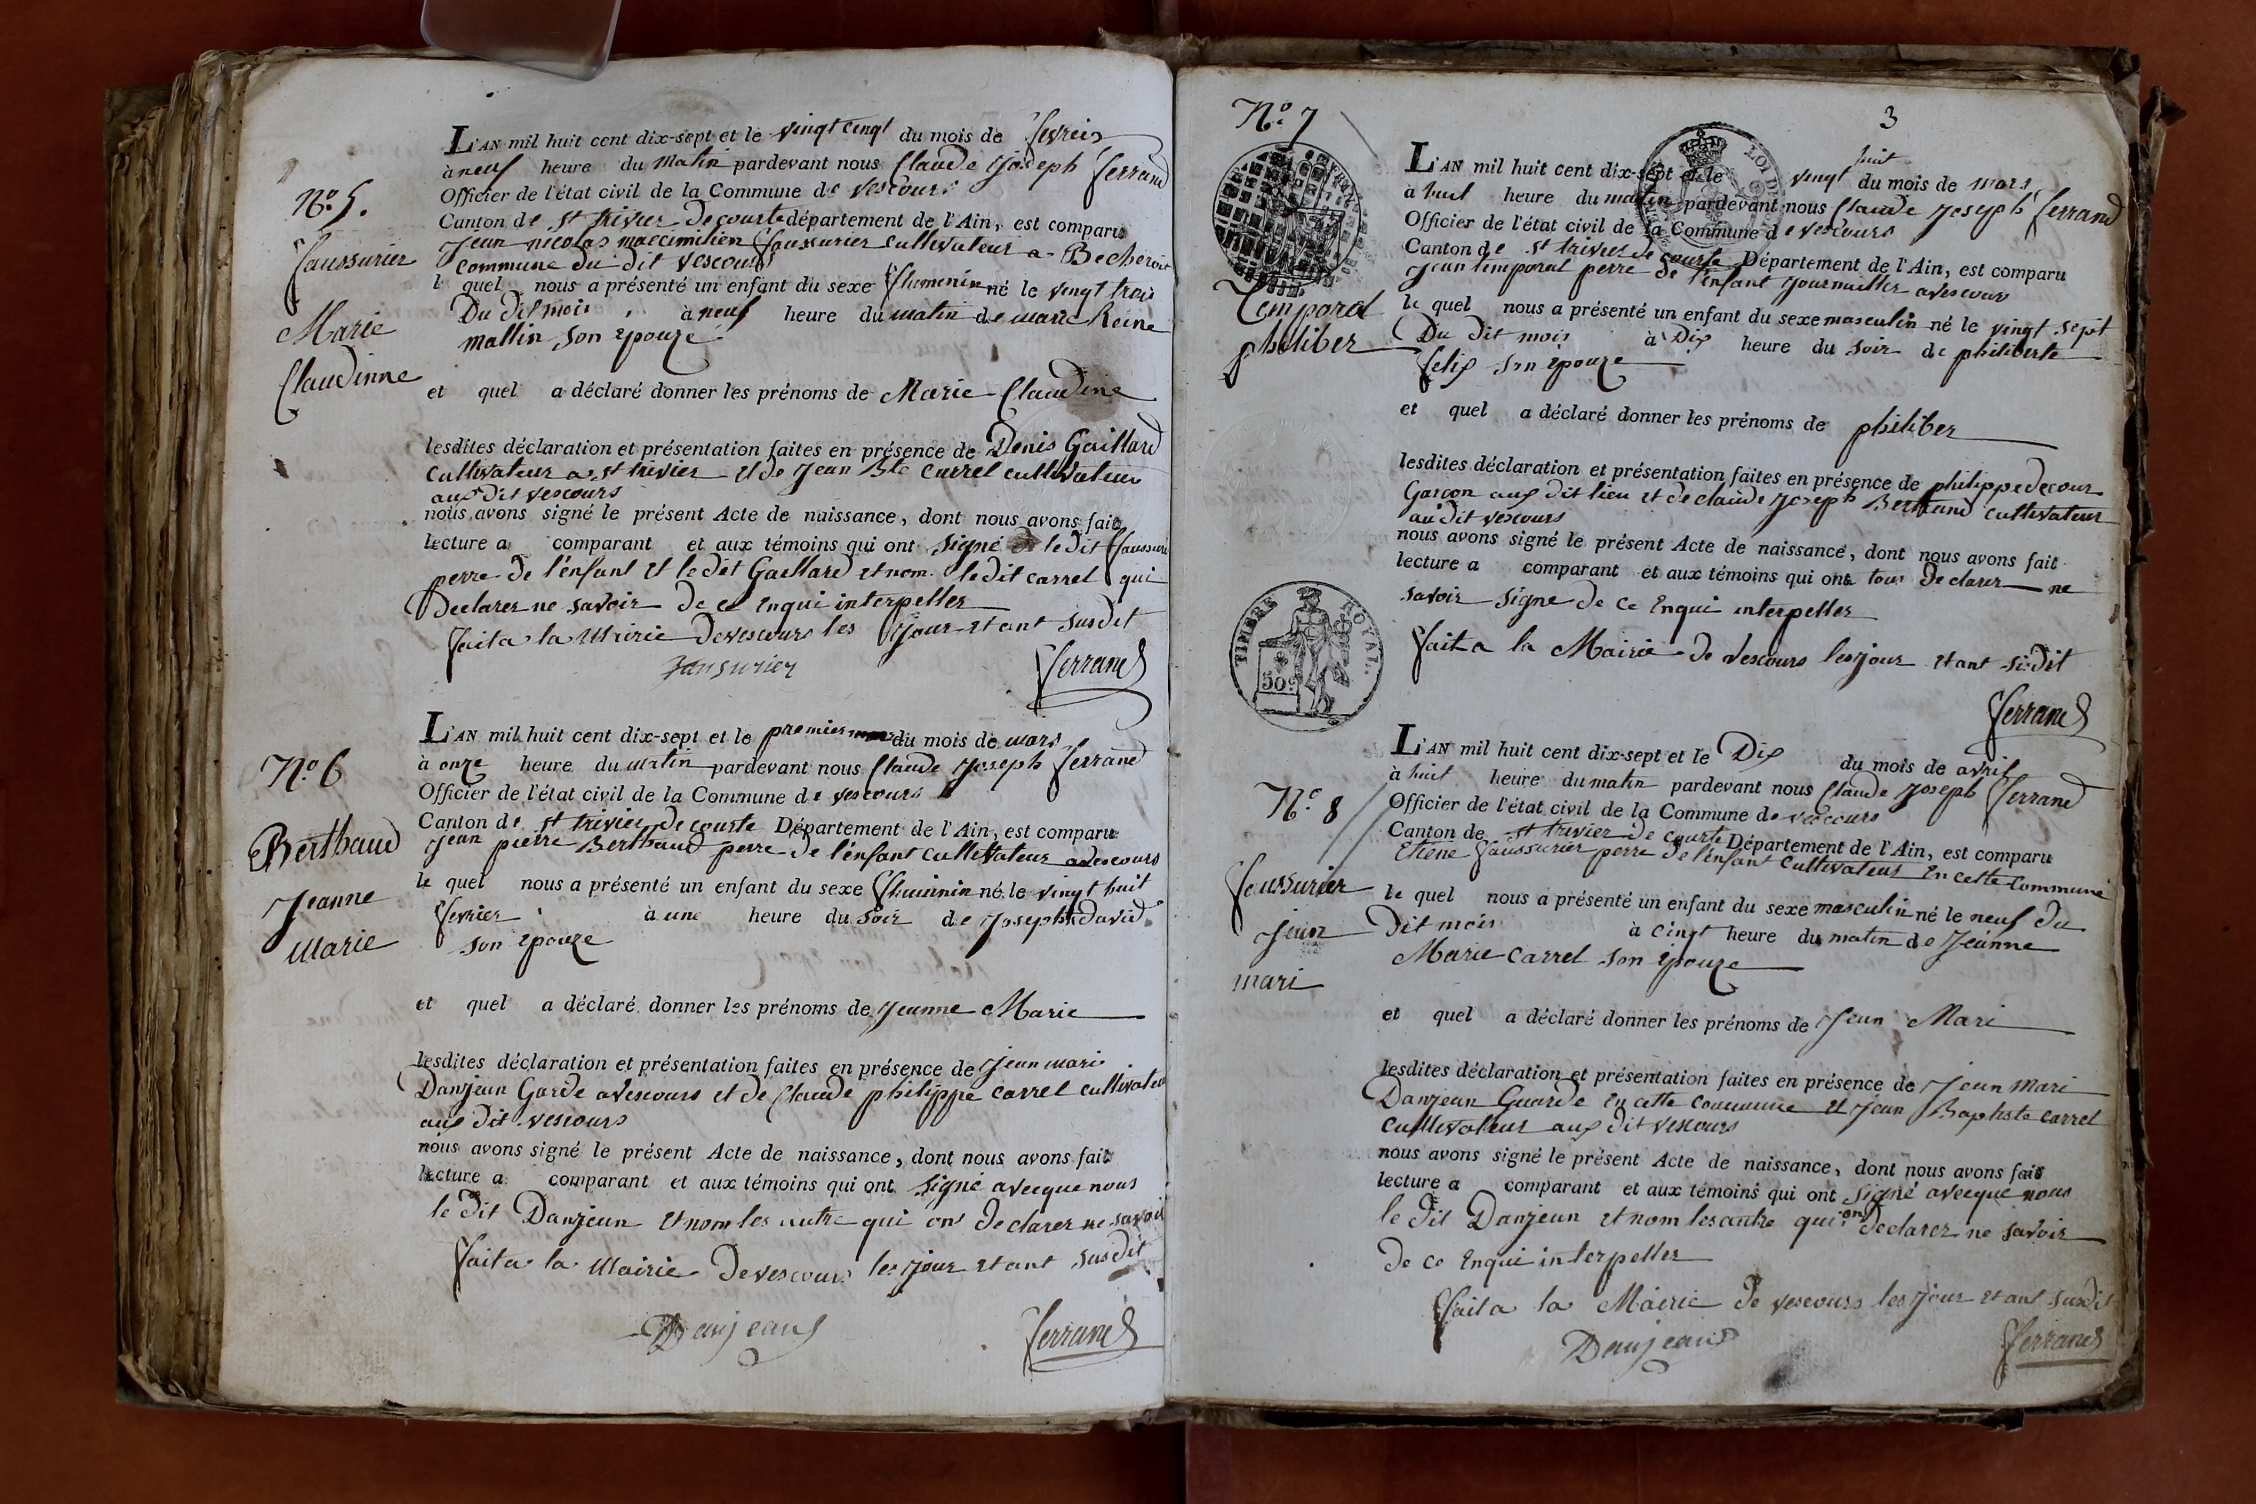 N.º 5.
faussurier
Marie
Claudinne
L'AN mil huit cent dix-sept et le vingt cinq du mois de fevrier
à neuf heure du matin pardevant nous Claude Joseph ferrand
Officier de l'état civil de la Commune de vescours
Canton de st trivier de courte département de l'Ain, est comparu
Jean nicolas maccimilien faussurier cultivateur a Becherot
commune du dit vescours
le quel nous a présenté un enfant du sexe feumenin né le vingt trois
Du dit mois à neuf heure du matin de marie Reine
mallin son epouze
et quel a déclaré donner les prénoms de Marie Claudine
lesdites déclaration et présentation faites en présence de Denis Gaillard
cultivateur a st trivier et de Jean Bte carrel cultivateur
aux dit vescours
nous avons signé le présent Acte de naissance, dont nous avons fait
lecture a comparant et aux témoins qui ont signé de le dit faussuri
perre de l'enfant et le dit Gaillard et nom le dit carrel qui
Declarer ne savoir de ce enqui interpeller
fait a la Mairie de vescours les jour et ant susdit
fausurier ferrand
N.º 6
Berthaud
Jeanne
Marie
L'AN mil huit cent dix-sept et le premier du mois de mars
à onze heure du matin pardevant nous Claude Joseph ferrand
Officier de l'état civil de la Commune de vescours
Canton de st trivier de courte Département de l'Ain, est comparu
Jean pierre Berthaud perre de l'enfant cultivateur a vescours
le quel nous a présenté un enfant du sexe feuminin né le vingt huit
fevrier à une heure du soir de Josephe David
son epouze
et quel a déclaré donner les prénoms de Jeanne Marie
lesdites déclaration et présentation faites en présence de Jean mari
Danjean Garde a vescours et de Claude philippe carrel cultivateu
aux dit vescours
nous avons signé le présent Acte de naissance, dont nous avons fait
lecture a comparant et aux témoins qui ont signé avecque nous
le dit Danjean et nom les autre qui ont declarer ne savoir
fait a la Mairie De vescours les jour et ant susdit
Danjean ferrand
3
N.º 7
Temporal
philiber
TIMBRE ROYAL.
50c
L'AN mil huit cent dix-sept et le vingt huit du mois de mars
à huit heure du matin pardevant nous Claude Joseph ferrand
Officier de l'état civil de la Commune de vescours
Canton de st trivier de courte Département de l'Ain, est comparu
Jean temporal perre de l'enfant journaillier a vescours
le quel nous a présenté un enfant du sexe masculin né le vingt sept
Du dit mois à Dix heure du soir de philiberte
felix son epouze
et quel a déclaré donner les prénoms de philiber
lesdites déclaration et présentation faites en présence de philippe decour
Garcon aux dit lieu et de claude Joseph Bertrand cultivateur
au dit vescours
nous avons signé le présent Acte de naissance, dont nous avons fait
lecture a comparant et aux témoins qui ont tous declarer ne
savoir signe de ce enqui interpeller
fait a la Mairie de vescours les jour et ant sudit
ferrand
N.º 8
faussurier
Jean
mari
L'AN mil huit cent dix-sept et le Dix du mois de avril
à huit heure du matin pardevant nous Claude Joseph ferrand
Officier de l'état civil de la Commune de vescours
Canton de st trivier de courte Département de l'Ain, est comparu
Etiene faussurier perre de l'enfant cultivateur en cette commune
le quel nous a présenté un enfant du sexe masculin né le neuf du
dit mois à cinqt heure du matin de Jeanne
Marie carrel son epouze
et quel a déclaré donner les prénoms de Jean Mari
lesdites déclaration et présentation faites en présence de Jean Mari
Danjean Guarde en cette commune et Jean Baptiste carrel
cultivateur aux dit vescours
nous avons signé le présent Acte de naissance, dont nous avons fait
lecture a comparant et aux témoins qui ont signé avecque nous
le dit Danjean et nom les autre qui ont declarer ne savoir
de ce enqui interpeller
fait a la Mairie de vescours les jour et ant susdit
Danjean ferrand